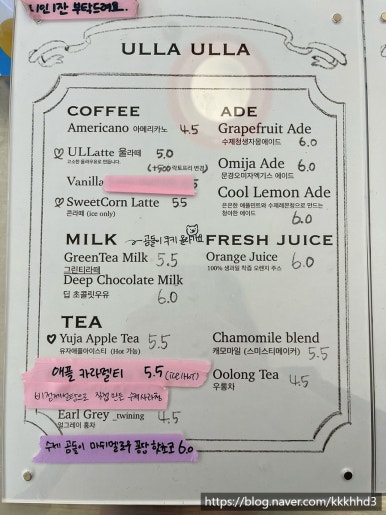 1인 1잔 부탁드려요.
ULLA ULLA
COFFEE
Americano 아메리카노 4.5
ULLatte 울라떼 5.0
고소한 울라우유로 만듭니다.
(+500 락토프리 변경)
Vanilla 5
SweetCorn Latte 5.5
콘라떼 (ice only)
ADE
Grapefruit Ade
수제청생자몽에이드 6.0
Omija Ade 6.0
문경오미자엑기스 에이드
Cool Lemon Ade
은은한 애플민트와 수제레몬청으로 만드는
청아한 에이드 6.0
MILK
곰돌이 쿠키
GreenTea Milk 5.5
그린티라떼
Deep Chocolate Milk
딥 초콜릿우유 6.0
FRESH JUICE
Orange Juice 6.0
100% 생과일 착즙 오렌지 주스
TEA
Yuja Apple Tea 5.5
유자애플아이스티 (Hot 가능)
애플 카라멜티 5.5 (ice/Hot)
비정제설탕으로 직접 만든 수제
Earl Grey _twining 4.5
얼그레이 홍차
수제 곰돌이 마쉬멜로우 퐁당 핫쵸코 6.0
Chamomile blend
캐모마일 (스미스티메이커) 5.5
Oolong Tea 4.5
우롱차
https://blog.naver.com/kkkhhd3